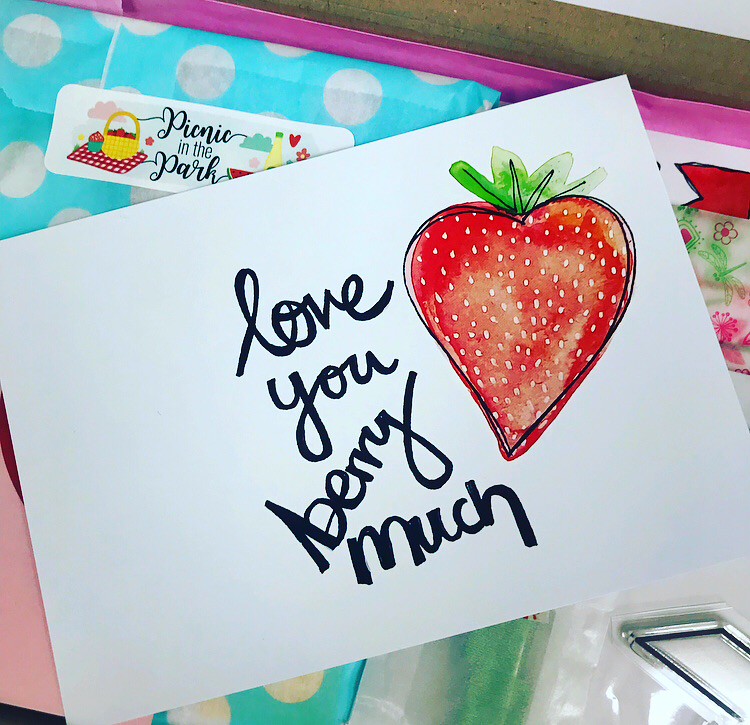 Picnic
in the
Park
love
you
berry
much